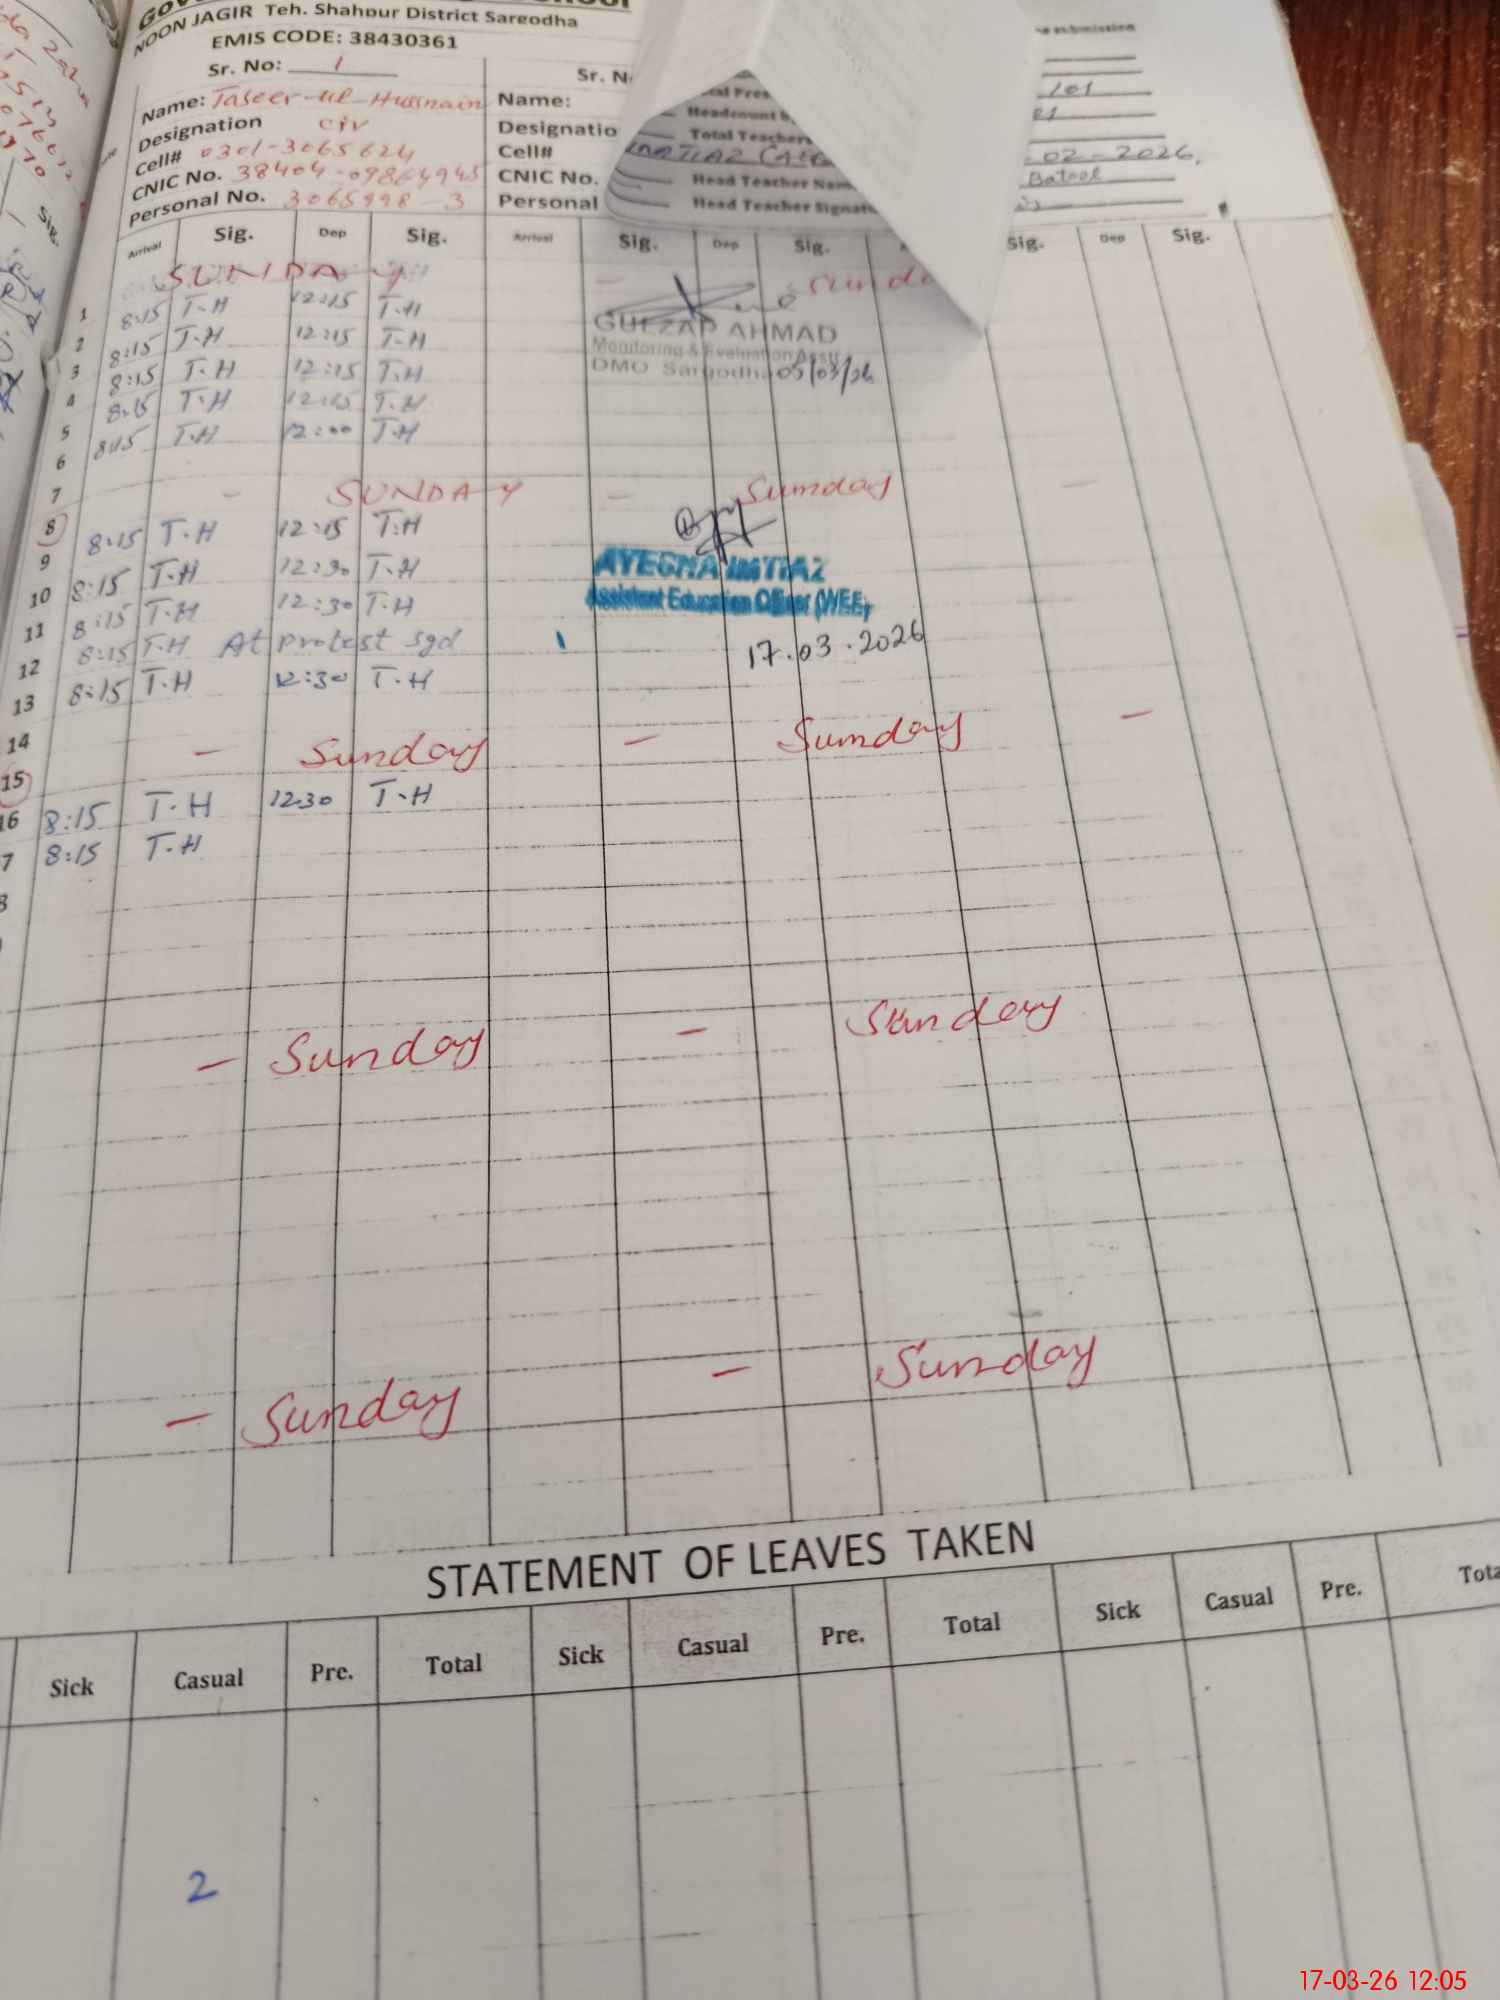 NOON JAGIR Teh. Shahpur District Sargodha
EMIS CODE: 38430361
Sr. No: 1
Name: Taseer-ul-Hussnain
Designation
Cell# 0301-3065624
CNIC No. 38404-
Personal No.
Sr. N
Name:
Designatio
Cell#
CNIC No.
Personal
Headcount
Total Teachers
Head Teacher Nam
Head Teacher Signat
101
-02-2026,
Batool
Arrival Sig. Dep Sig. Arrival Sig. Dep Sig. Sig. Dep Sig.
SUNDAY - Sunda
1
2 8:15 T.H 12:15 T.H
GULZAR AHMAD
3 8:15 T.H 12:15 T.H
Monitoring & Evaluation Asstt
4 8:15 T.H 12:15 T.H
DMO Sargodha 05/03/26
5 8:15 T.H 12:15 T.H
6 8:15 T.H 12:00 T.H
7
8 - SUNDAY - Sunday -
9 8:15 T.H 12:15 T.H
10 8:15 T.H 12:30 T.H
AYESHA IMTIAZ
Assistant Education Officer (WEE)
11 8:15 T.H 12:30 T.H
12 8:15 T.H At protest sgd
17.03.2026
13 8:15 T.H 12:30 T.H
14
15 - Sunday - Sunday -
16 8:15 T.H 12:30 T.H
7 8:15 T.H
8
- Sunday - Sunday
- Sunday - Sunday
STATEMENT OF LEAVES TAKEN
Sick Casual Pre. Total Sick Casual Pre. Total Sick Casual Pre. Tota
2
17-03-26 12:05